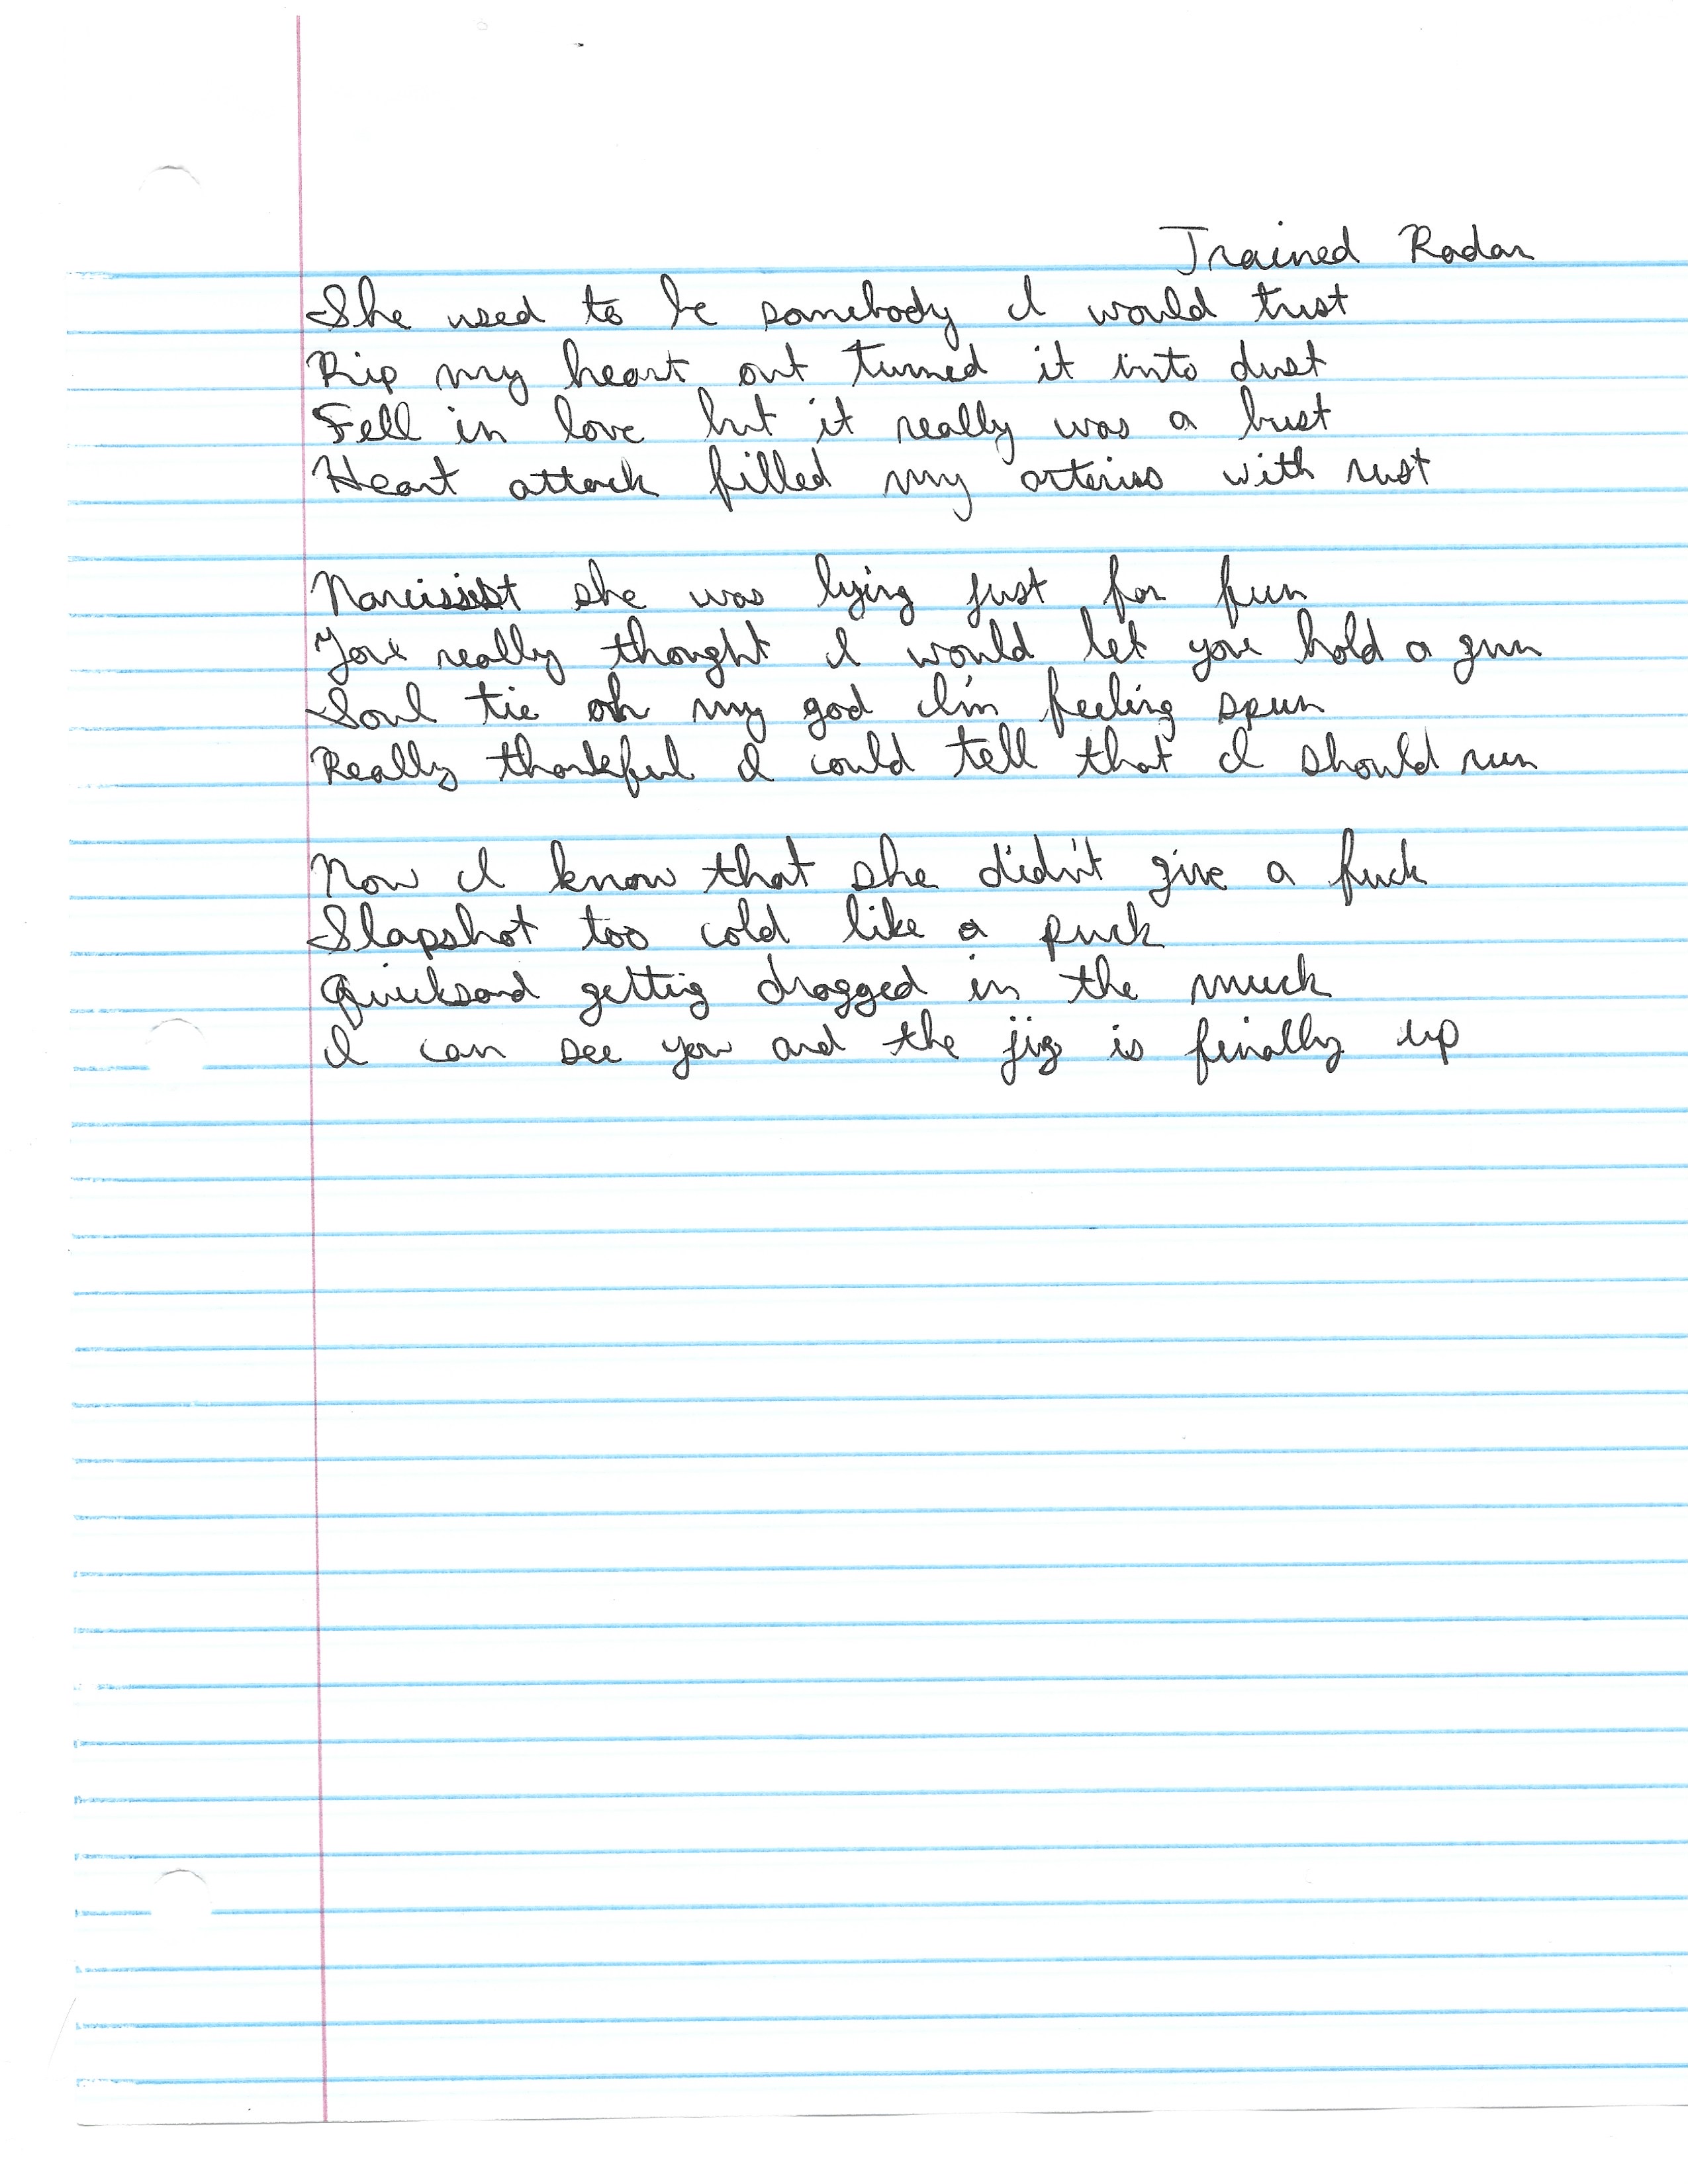 Trained Radar
She used to be somebody I would trust
Rip my heart out turned it into dust
Fell in love but it really was a bust
Heart attack filled my arteries with rust
Narcissist she was lying just for fun
You really thought I would let you hold a gun
Soul tie oh my god I'm feeling spun
Really thankful I could tell that I should run
Now I know that she didn't give a fuck
Slapshot too cold like a puck
Quicksand getting dragged in the muck
I can see you and the jig is finally up